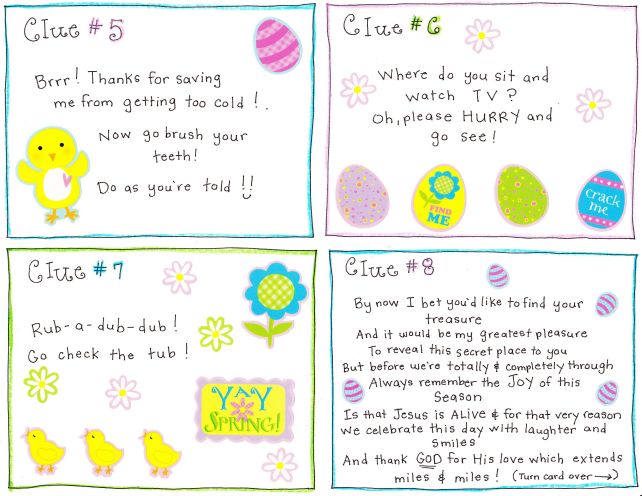 Clue #5
Brrr! Thanks for saving
me from getting too cold!
Now go brush your
teeth!
Do as you're told!!
Clue #6
Where do you sit and
watch TV?
Oh, please HURRY and
go see!
FIND
ME
crack
me
Clue #7
Rub-a-dub-dub!
Go check the tub!
YAY
SPRING!
Clue #8
By now I bet you'd like to find your
treasure
And it would be my greatest pleasure
To reveal this secret place to you
But before we're totally & completely through
Always remember the JOY of this
Season
Is that Jesus is ALIVE & for that very reason
We celebrate this day with laughter and
smiles
And thank GOD for His love which extends
miles & miles! (Turn card over →)